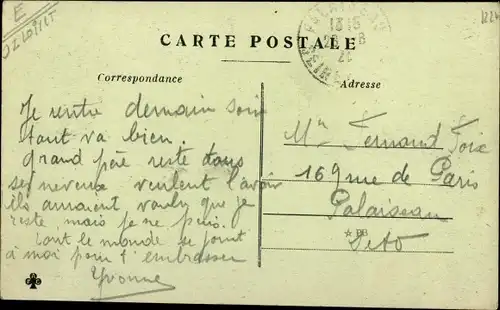 E
CARTE POSTALE
13 15
Correspondance
Adresse
Je rentre demain soir
tout va bien.
Grand père reste tous
ses neveux veulent l'avoir
ils auraient voulu que je
reste mais je ne puis.
tout le monde se joint
à moi pour t'embrasser
Yvonne
Mr Fernand Foix
169 rue de Paris
Palaiseau
★ BB